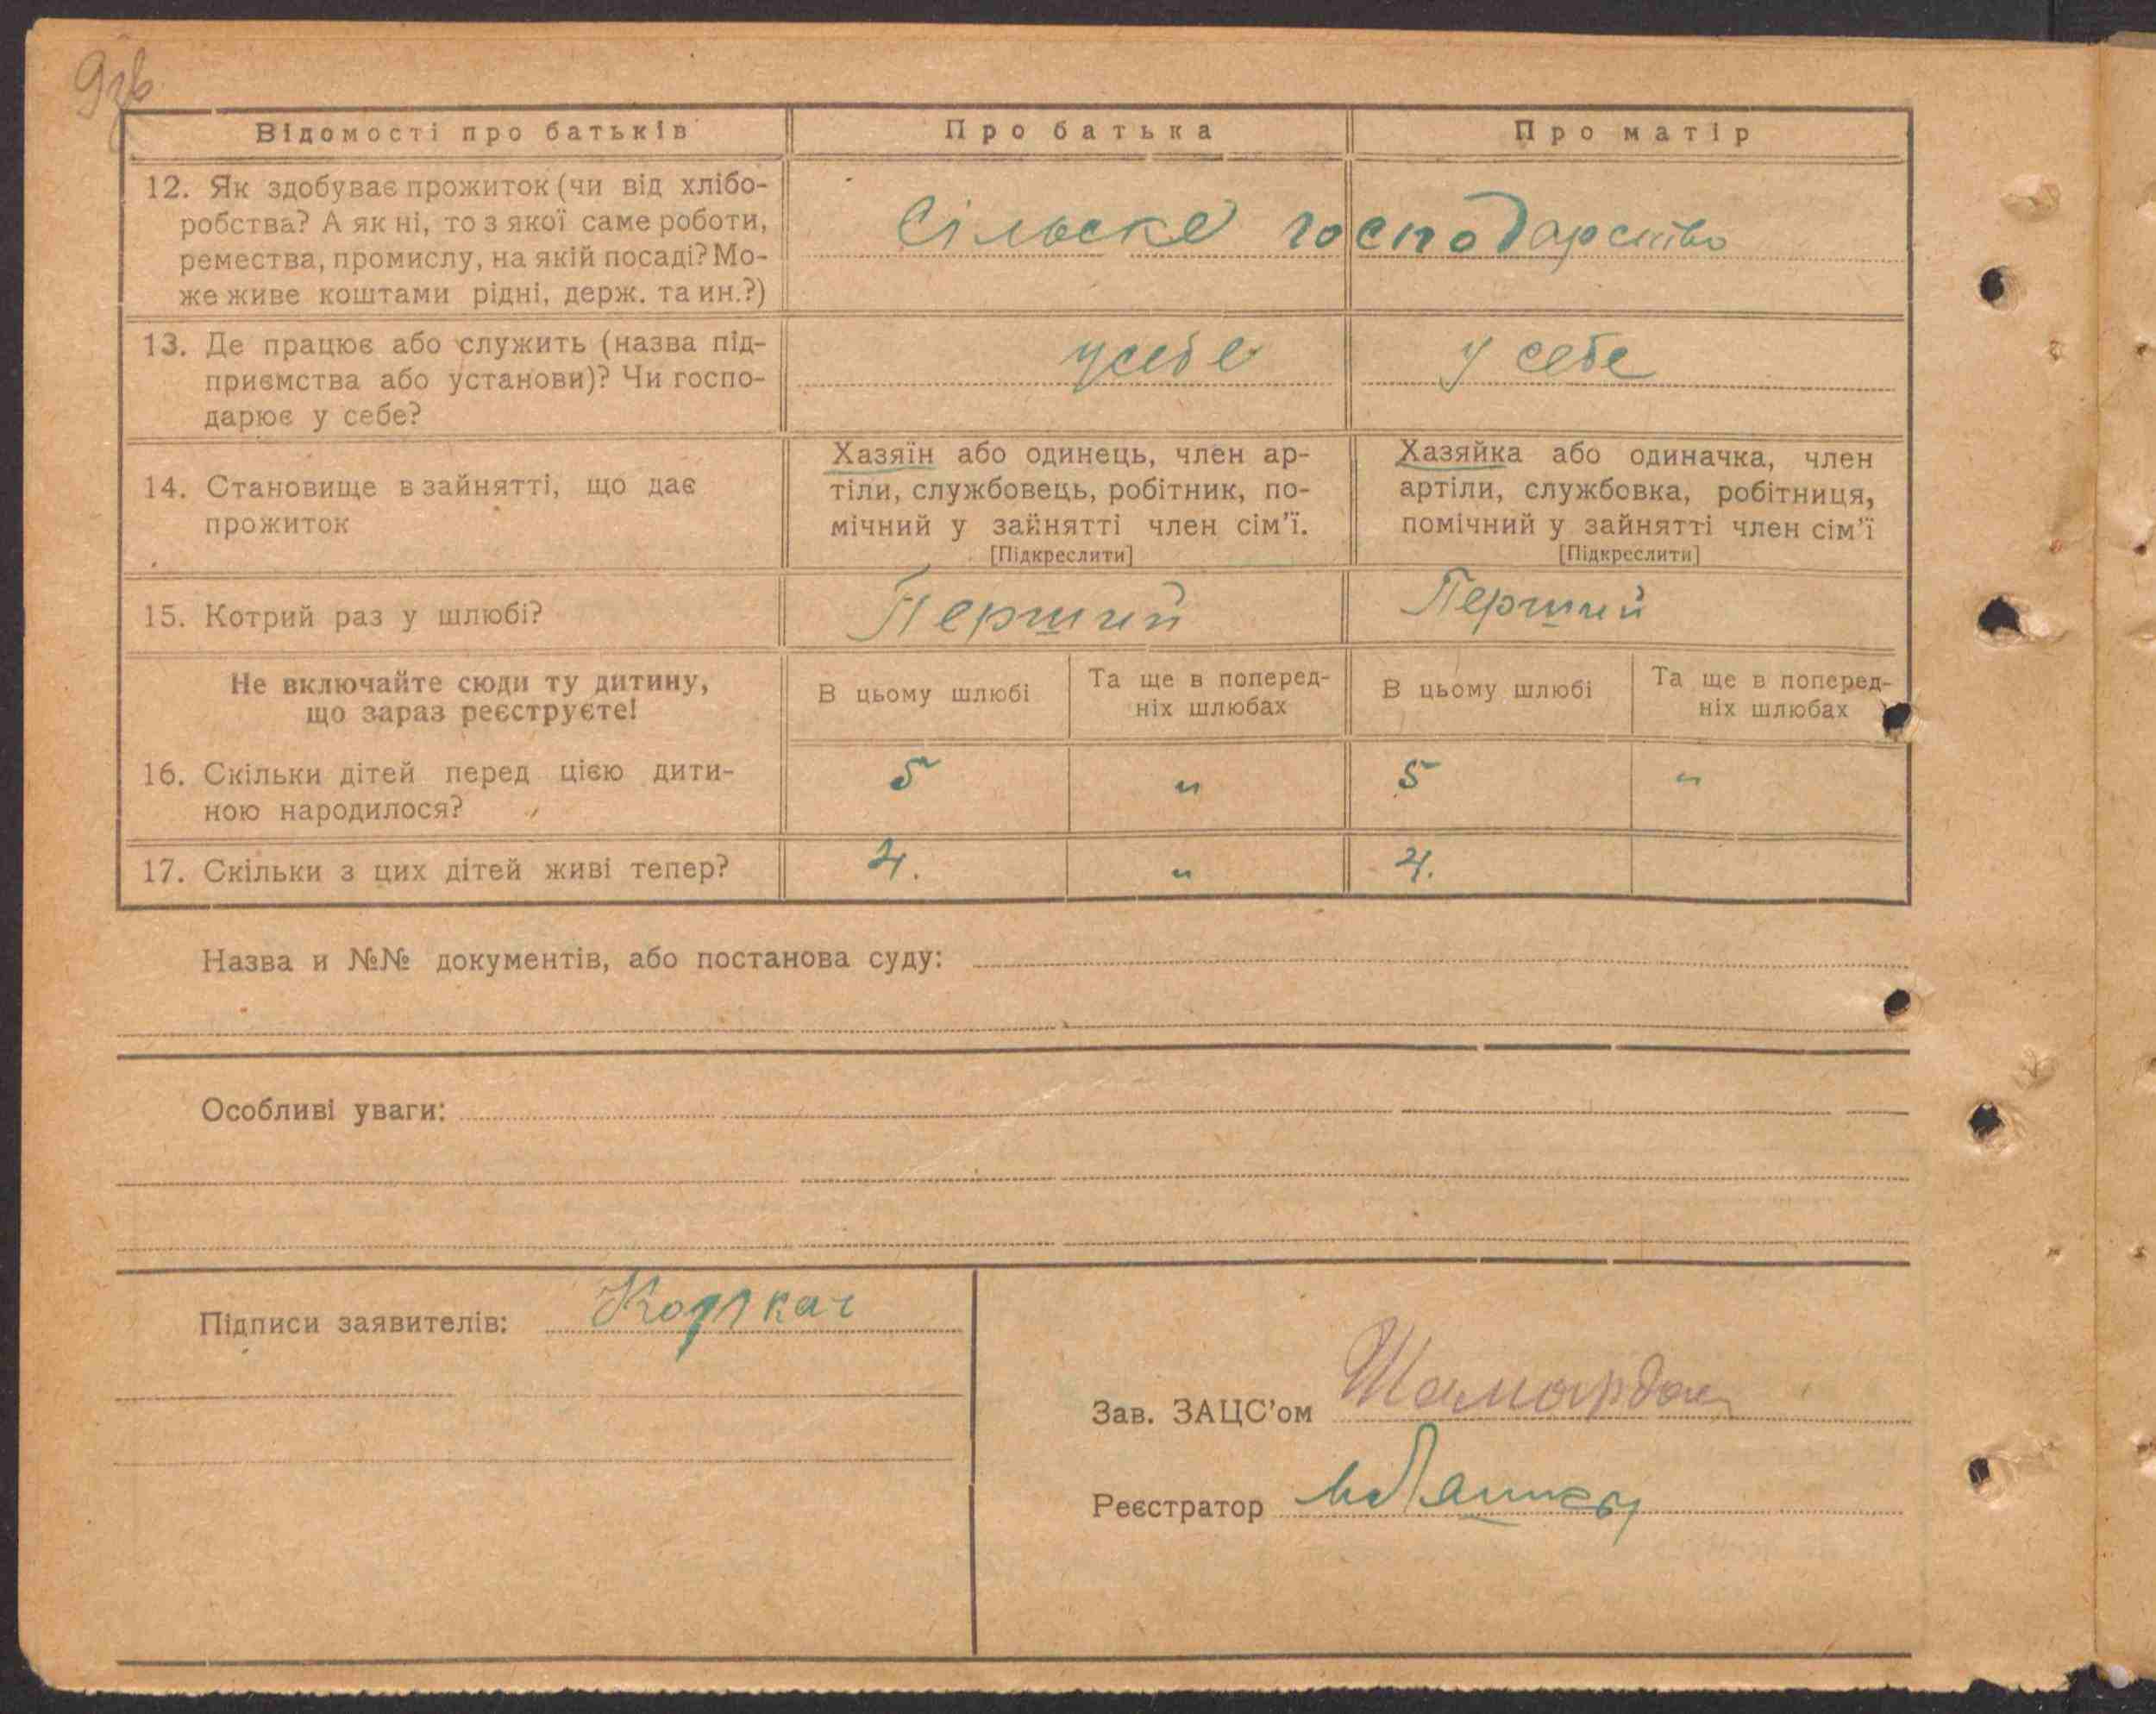 Відомості про батьків Про батька Про матір
12. Як здобуває прожиток (чи від хлібо-
робства? А як ні, то з якої саме роботи,
ремества, промислу, на якій посаді? Мо-
же живе коштами рідні, держ. та ин.?)
Сільске господарство
13. Де працює або служить (назва під-
приємства або установи)? Чи госпо-
дарює у себе?
у себе у себе
14. Становище в зайнятті, що дає
прожиток
Хазяїн або одинець, член ар-
тіли, службовець, робітник, по-
мічний у зайнятті член сім'ї.
[Підкреслити]
Хазяйка або одиначка, член
артіли, службовка, робітниця,
помічний у зайнятті член сім'ї
[Підкреслити]
15. Котрий раз у шлюбі? Перший Перший
Не включайте сюди ту дитину,
що зараз реєструєте!
В цьому шлюбі
Та ще в поперед-
ніх шлюбах
В цьому шлюбі
Та ще в поперед-
ніх шлюбах
16. Скільки дітей перед цією дити-
ною народилося?
5 " 5 "
17. Скільки з цих дітей живі тепер? 4. " 4.
Назва и №№ документів, або постанова суду:
Особливі уваги:
Підписи заявителів:
Зав. ЗАЦС'ом
Реєстратор